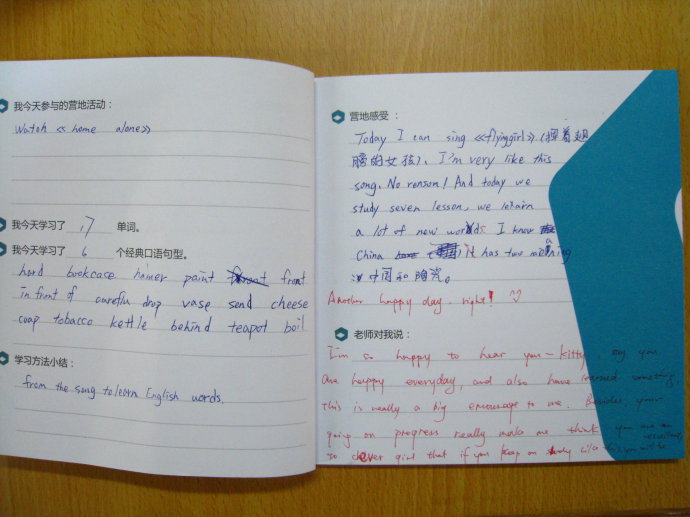 我今天参与的营地活动：
Watch 《home alone》
我今天学习了 17 单词。
我今天学习了 6 个经典口语句型。
hard bookcase homer paint front
in front of careful drop vase send cheese
coap tobacco kettle behind teapot boil
学习方法小结：
from the song to learn English words.
营地感受：
Today I can sing 《flying girl》(挥着翅
膀的女孩). I'm very like this
song. No renson! And today we
study seven lesson, we learn
a lot of new words I know
China it has two meaning
中国和陶瓷。
Another happy day. right!
老师对我说：
I'm so happy to hear you - Kitty, say you
are happy everyday, and also have learned something,
this is really a big encourage to me. Besides, your
going on progress really make me think you are
so clever girl that if you keep on study